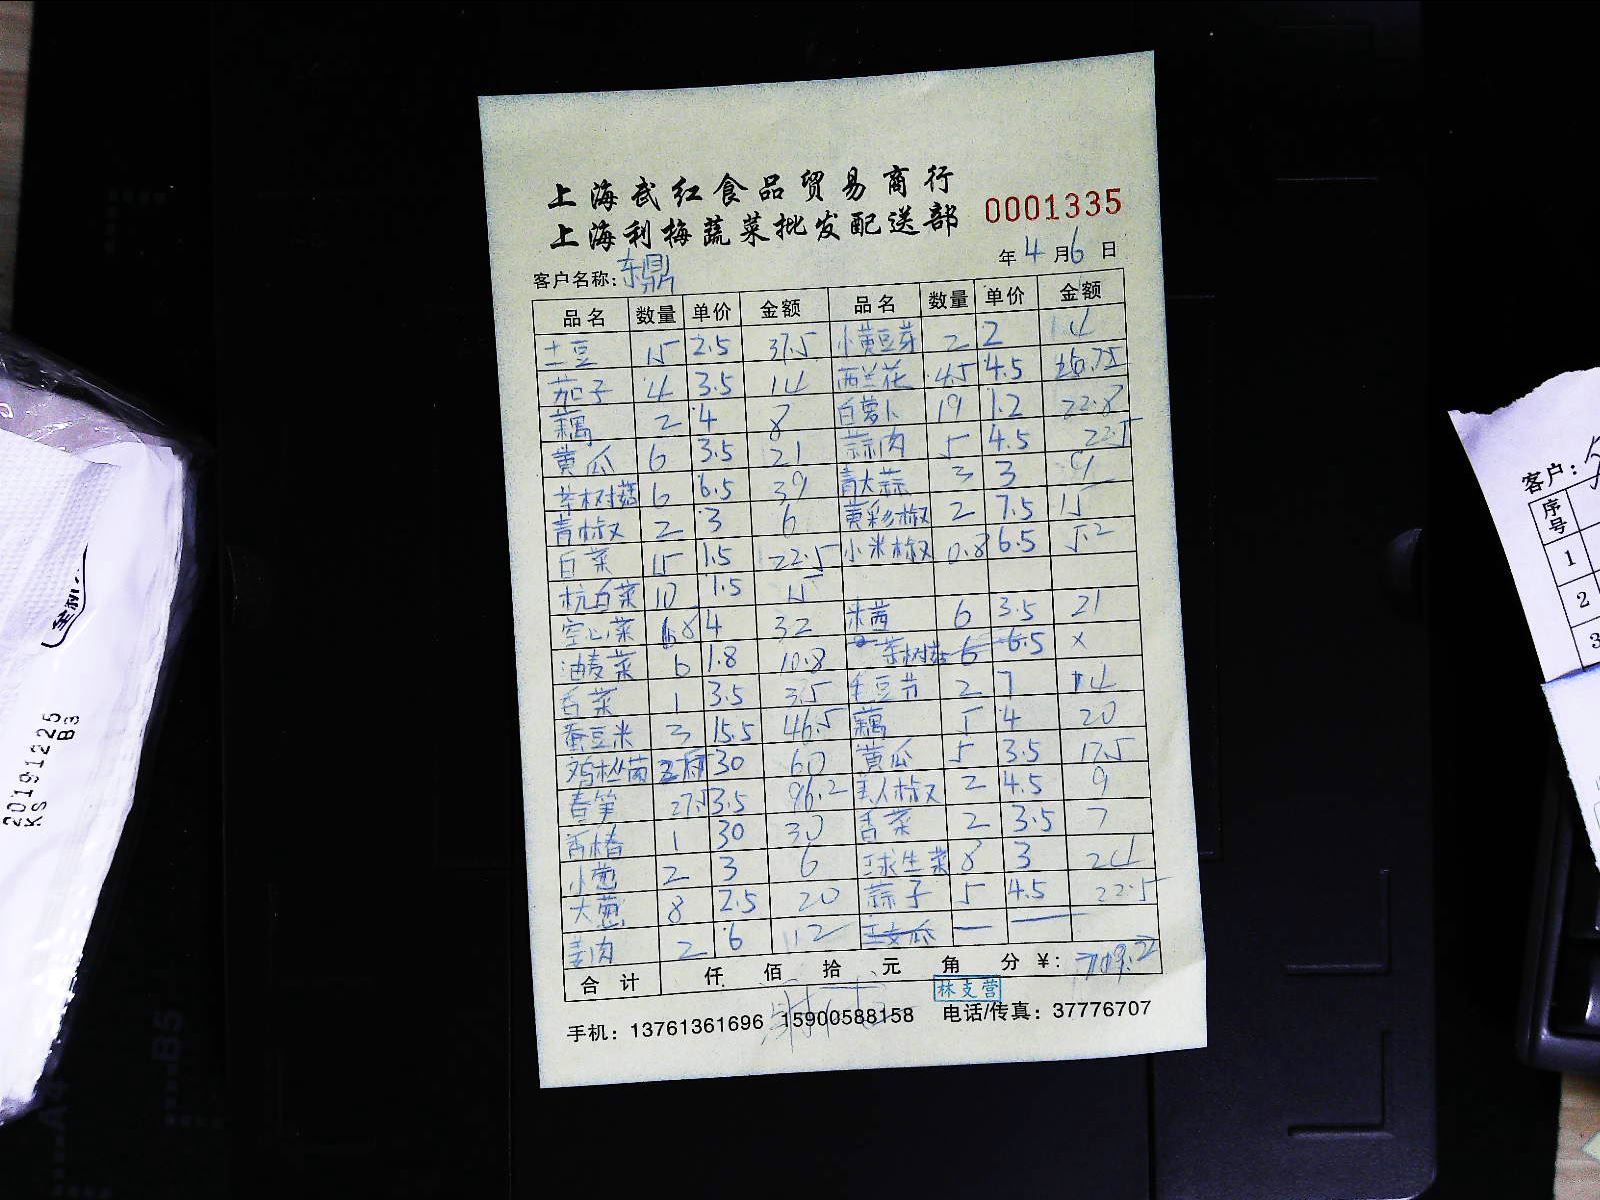 上海武红食品贸易商行
上海利梅蔬菜批发配送部
0001335
年 4 月 6 日
客户名称: 东鼎
品名 数量 单价 金额 品名 数量 单价 金额
土豆 15 2.5 37.5 小黄豆芽 2 2 4
茄子 4 3.5 14 西兰花 4.5 4.5
藕 2 4 8 白萝卜 19 1.2 22.8
黄瓜 6 3.5 21 蒜肉 5 4.5 22.5
茶树菇 6 6.5 39 青大蒜 3 3 9
青椒 2 3 6 黄彩椒 2 7.5 15
白菜 15 1.5 22.5 小米椒 0.8 6.5 5.2
杭白菜 10 1.5 15
空心菜 8 4 32 米苋 6 3.5 21
油麦菜 6 1.8 10.8 茶树菇 6 6.5 x
香菜 1 3.5 3.5 毛豆节 2 7 14
蚕豆米 3 15.5 46.5 藕 5 4 20
鸡枞菌 2斤 30 60 黄瓜 5 3.5 17.5
春笋 27.5 3.5 96.2 美人椒 2 4.5 9
香椿 1 30 30 香菜 2 3.5 7
小葱 2 3 6 球生菜 8 3 24
大葱 8 2.5 20 蒜子 5 4.5 22.5
姜肉 2 6 12
合计 仟 佰 拾 元 角 分 ¥:
林支营
手机: 13761361696 15900588158 电话/传真: 37776707
客户:
序号
1
2
3
20191225
KS B3
B5